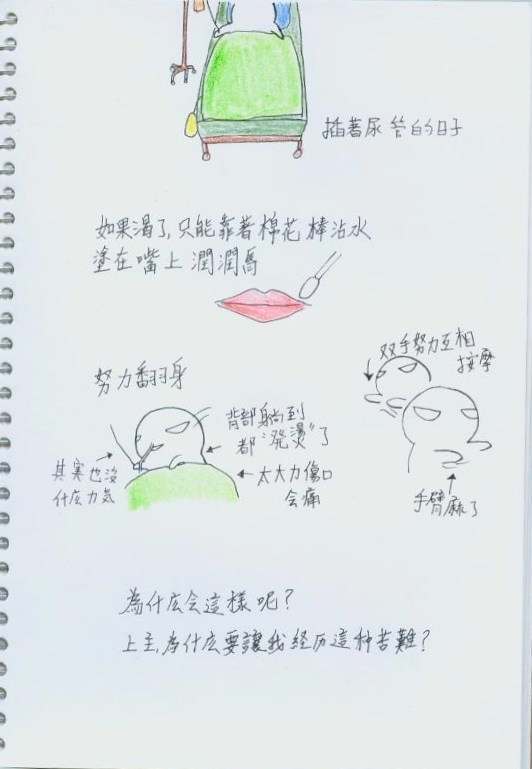 插著尿管的日子
如果渴了,只能靠著棉花棒沾水
塗在嘴上潤潤焉
双手努力互相
按摩
努力翻身
背部躺到
都"発燙"了
其実也沒
什広力気
太大力傷口
会痛
手臂麻了
為什広会這樣呢?
上主,為什広要讓我経历這种苦難?